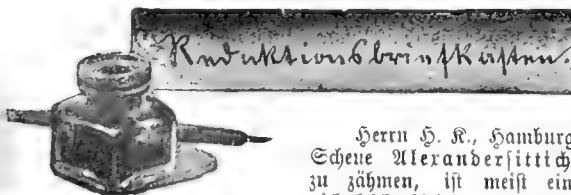 Redaktionsbriefkasten.
Herrn H. K., Hamburg
Scheue Alexandersittich
zu zähmen, ist meist ein